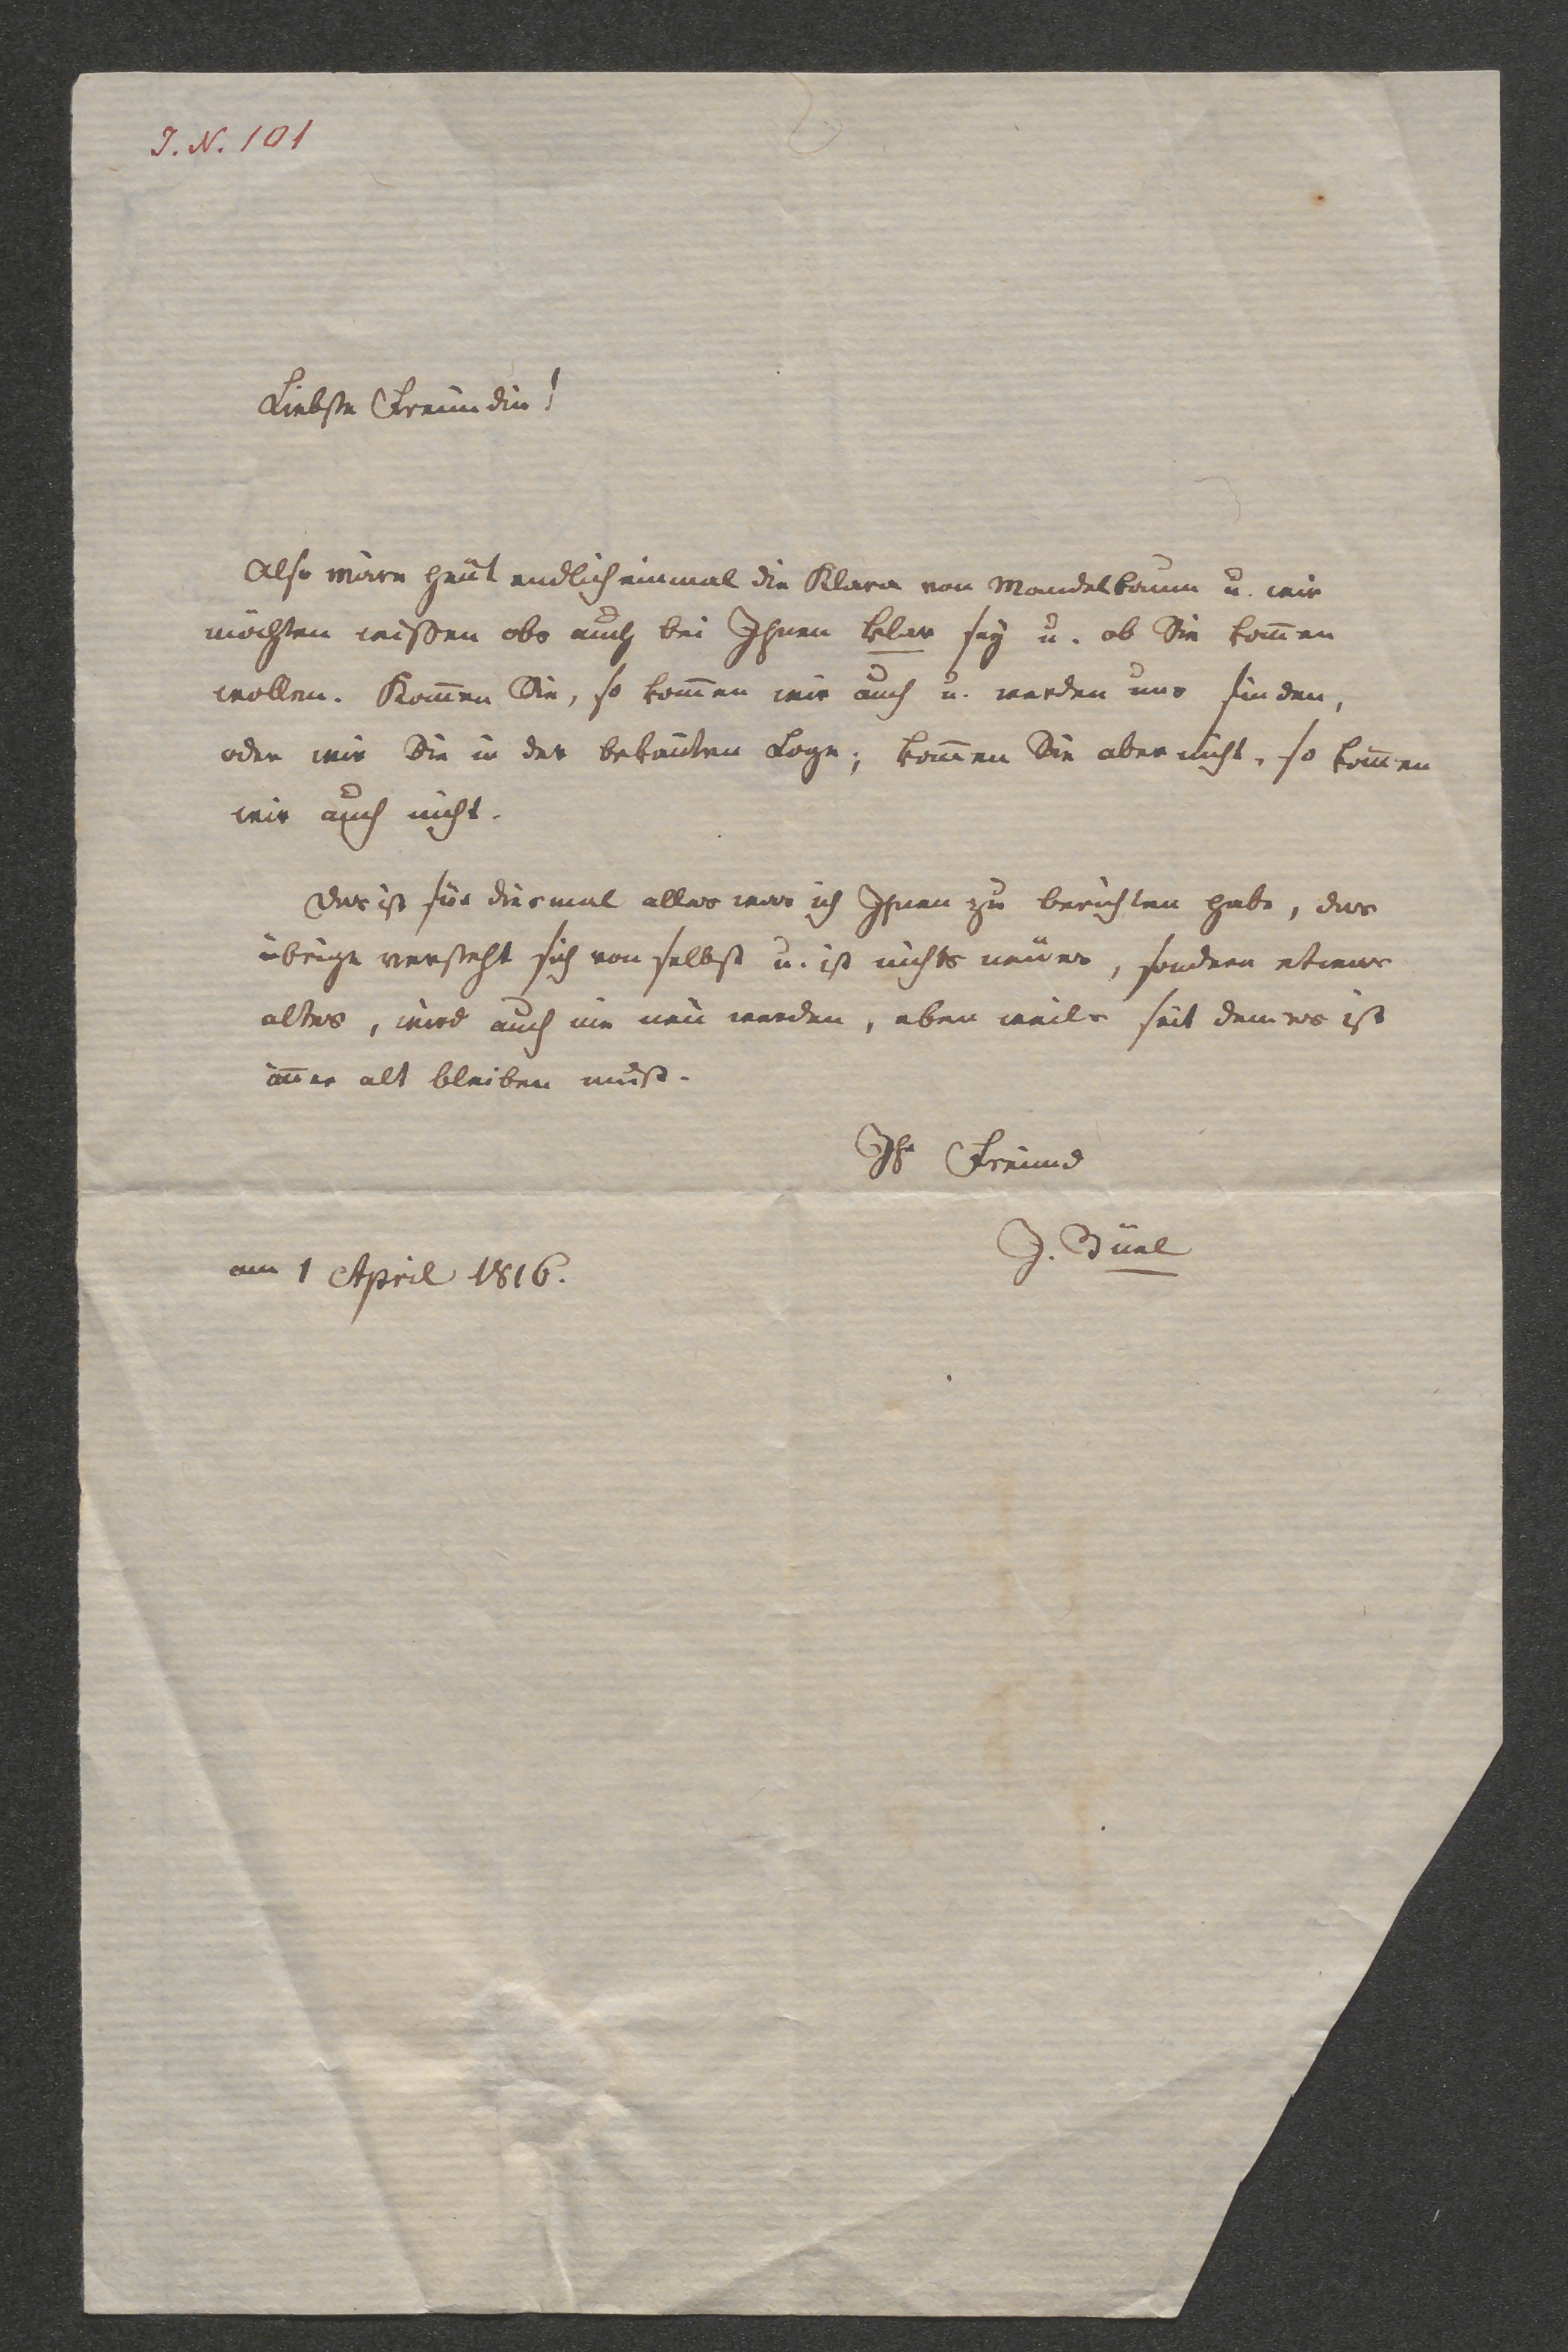 J. N. 101
Liebste Freundin!
Also wäre heüt endlich einmal die Klara von Mandelbaum u. wir
möchten wißen obs auch bei Ihnen klar sey u. ob Sie kom̅en
wollen. Kom̅en Sie, so kom̅en wir auch u. werden uns finden,
oder wir Sie in der bekan̅ten Loge; kom̅en Sie aber nicht, so kom̅en
wir auch nicht.
Das ist für diesmal alles was ich Ihnen zu berichten habe, das
übrige versteht sich von selbst u. ist nichts neües, sondern etwas
altes, wird auch nie neü werden, eben weils seit dem es ist
im̅er alt bleiben muß.
Ihr Freund
J. Büel
am 1 April 1816.